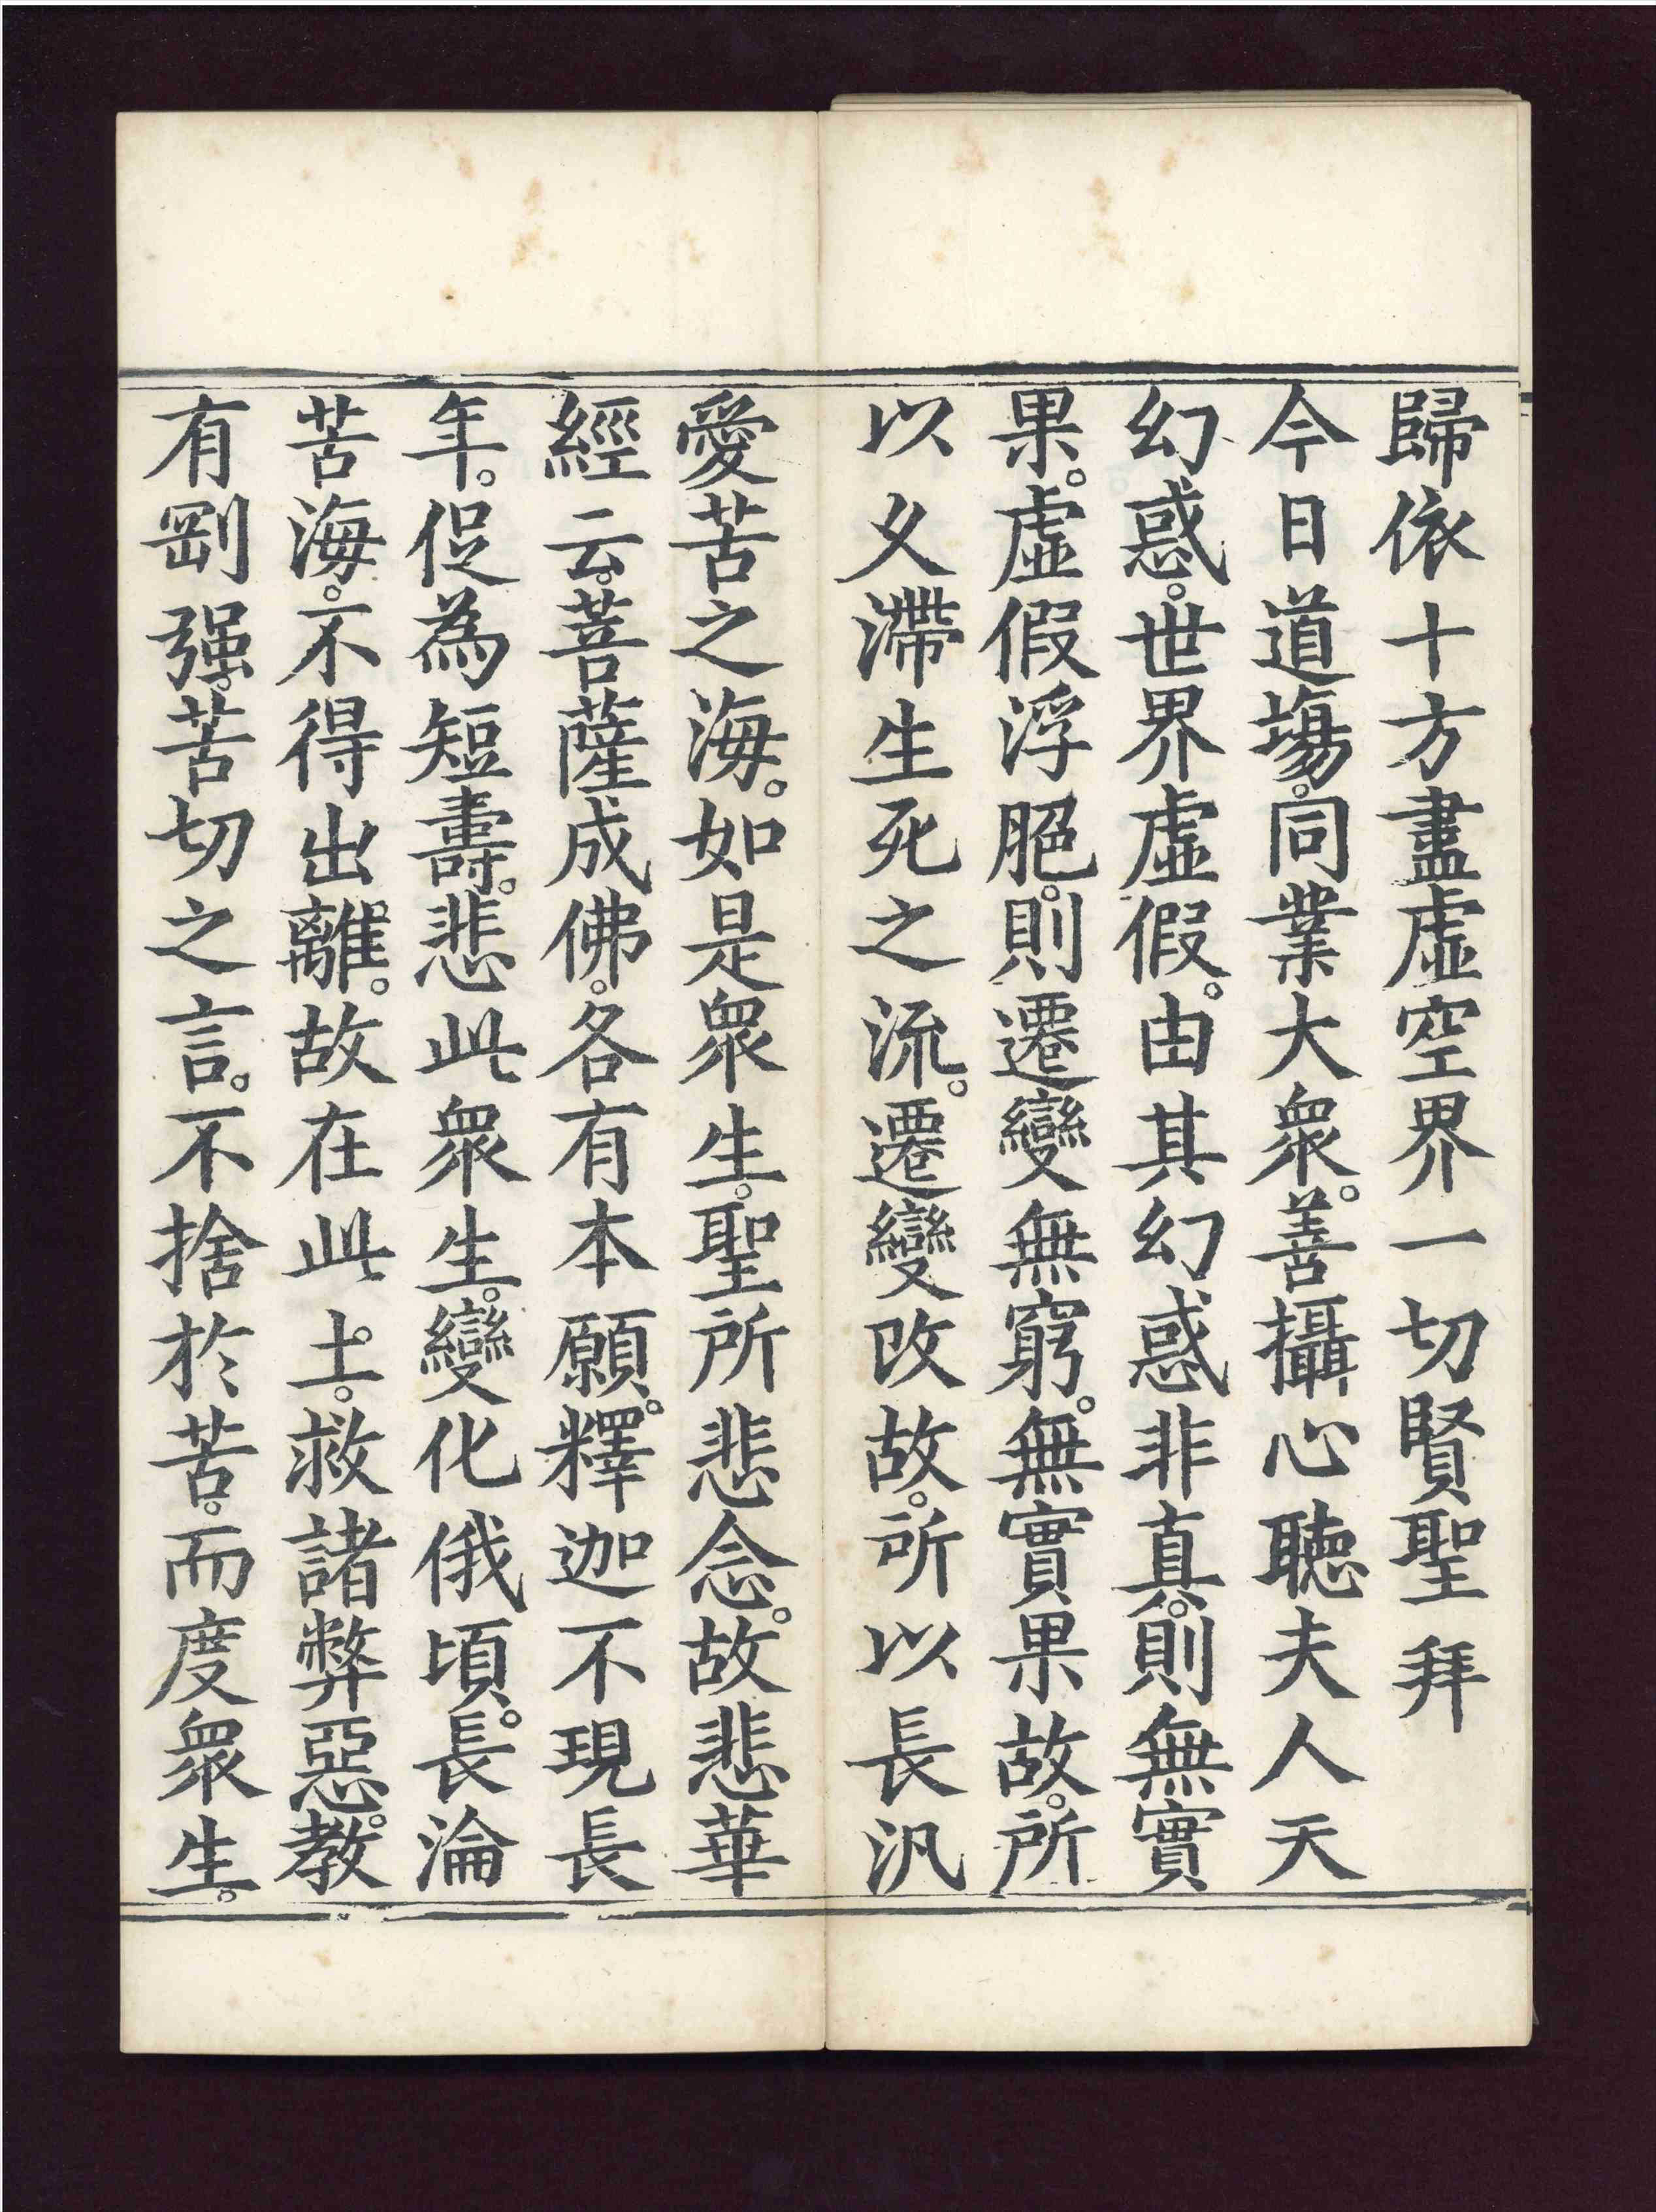 歸依十方盡虛空界一切賢聖拜
今日道場。同業大眾。善攝心聽夫人天
幻惑。世界虛假。由其幻惑非真。則無實
果。虛假浮脃。則遷變無窮。無實果故。所
以久滯生死之流。遷變改故。所以長汎
愛苦之海。如是眾生。聖所悲念。故悲華
經云。菩薩成佛。各有本願。釋迦不現長
年。促為短壽。悲此眾生。變化俄頃。長淪
苦海。不得出離。故在此土。救諸弊惡。教
有剛强。苦切之言。不捨於苦。而度眾生。